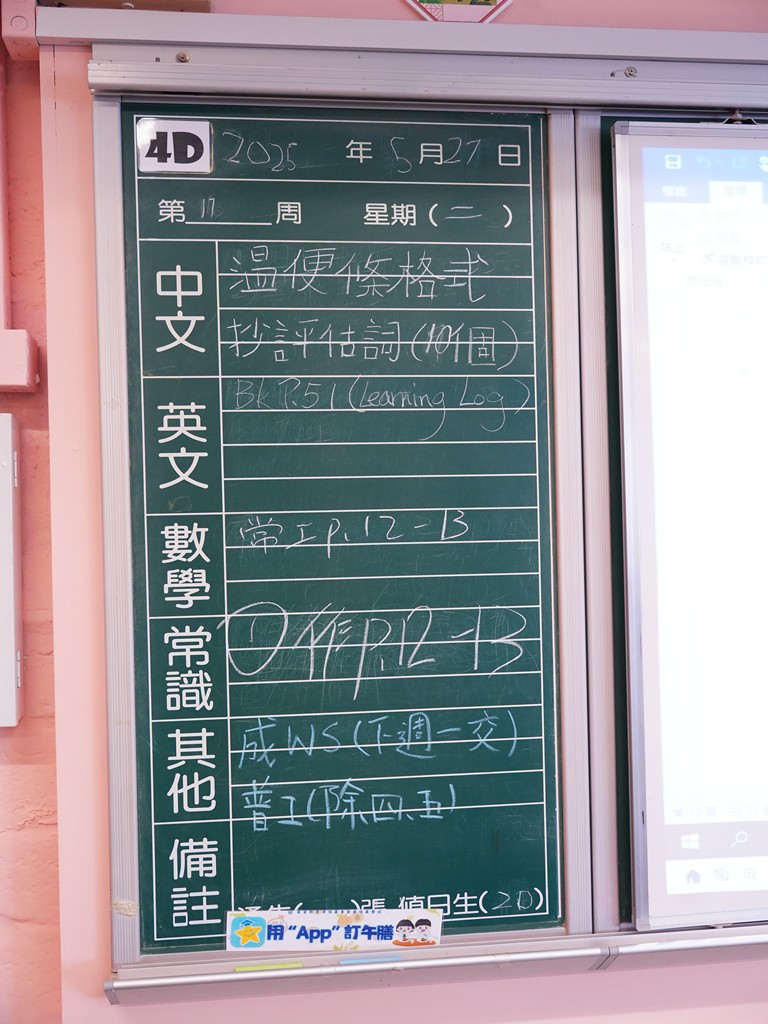 4D 2025 年 5 月 27 日
第 17 周 星期 (二)
中文
温便條格式
抄評估詞(10個)
英文
Bk P.51 (Learning Log)
數學
常工 p.12-13
常識
① 作 p.12-13
其他
成WS(下週一交)
普工(除四、五)
備註
張 值日生(20)
用 “App” 訂午膳